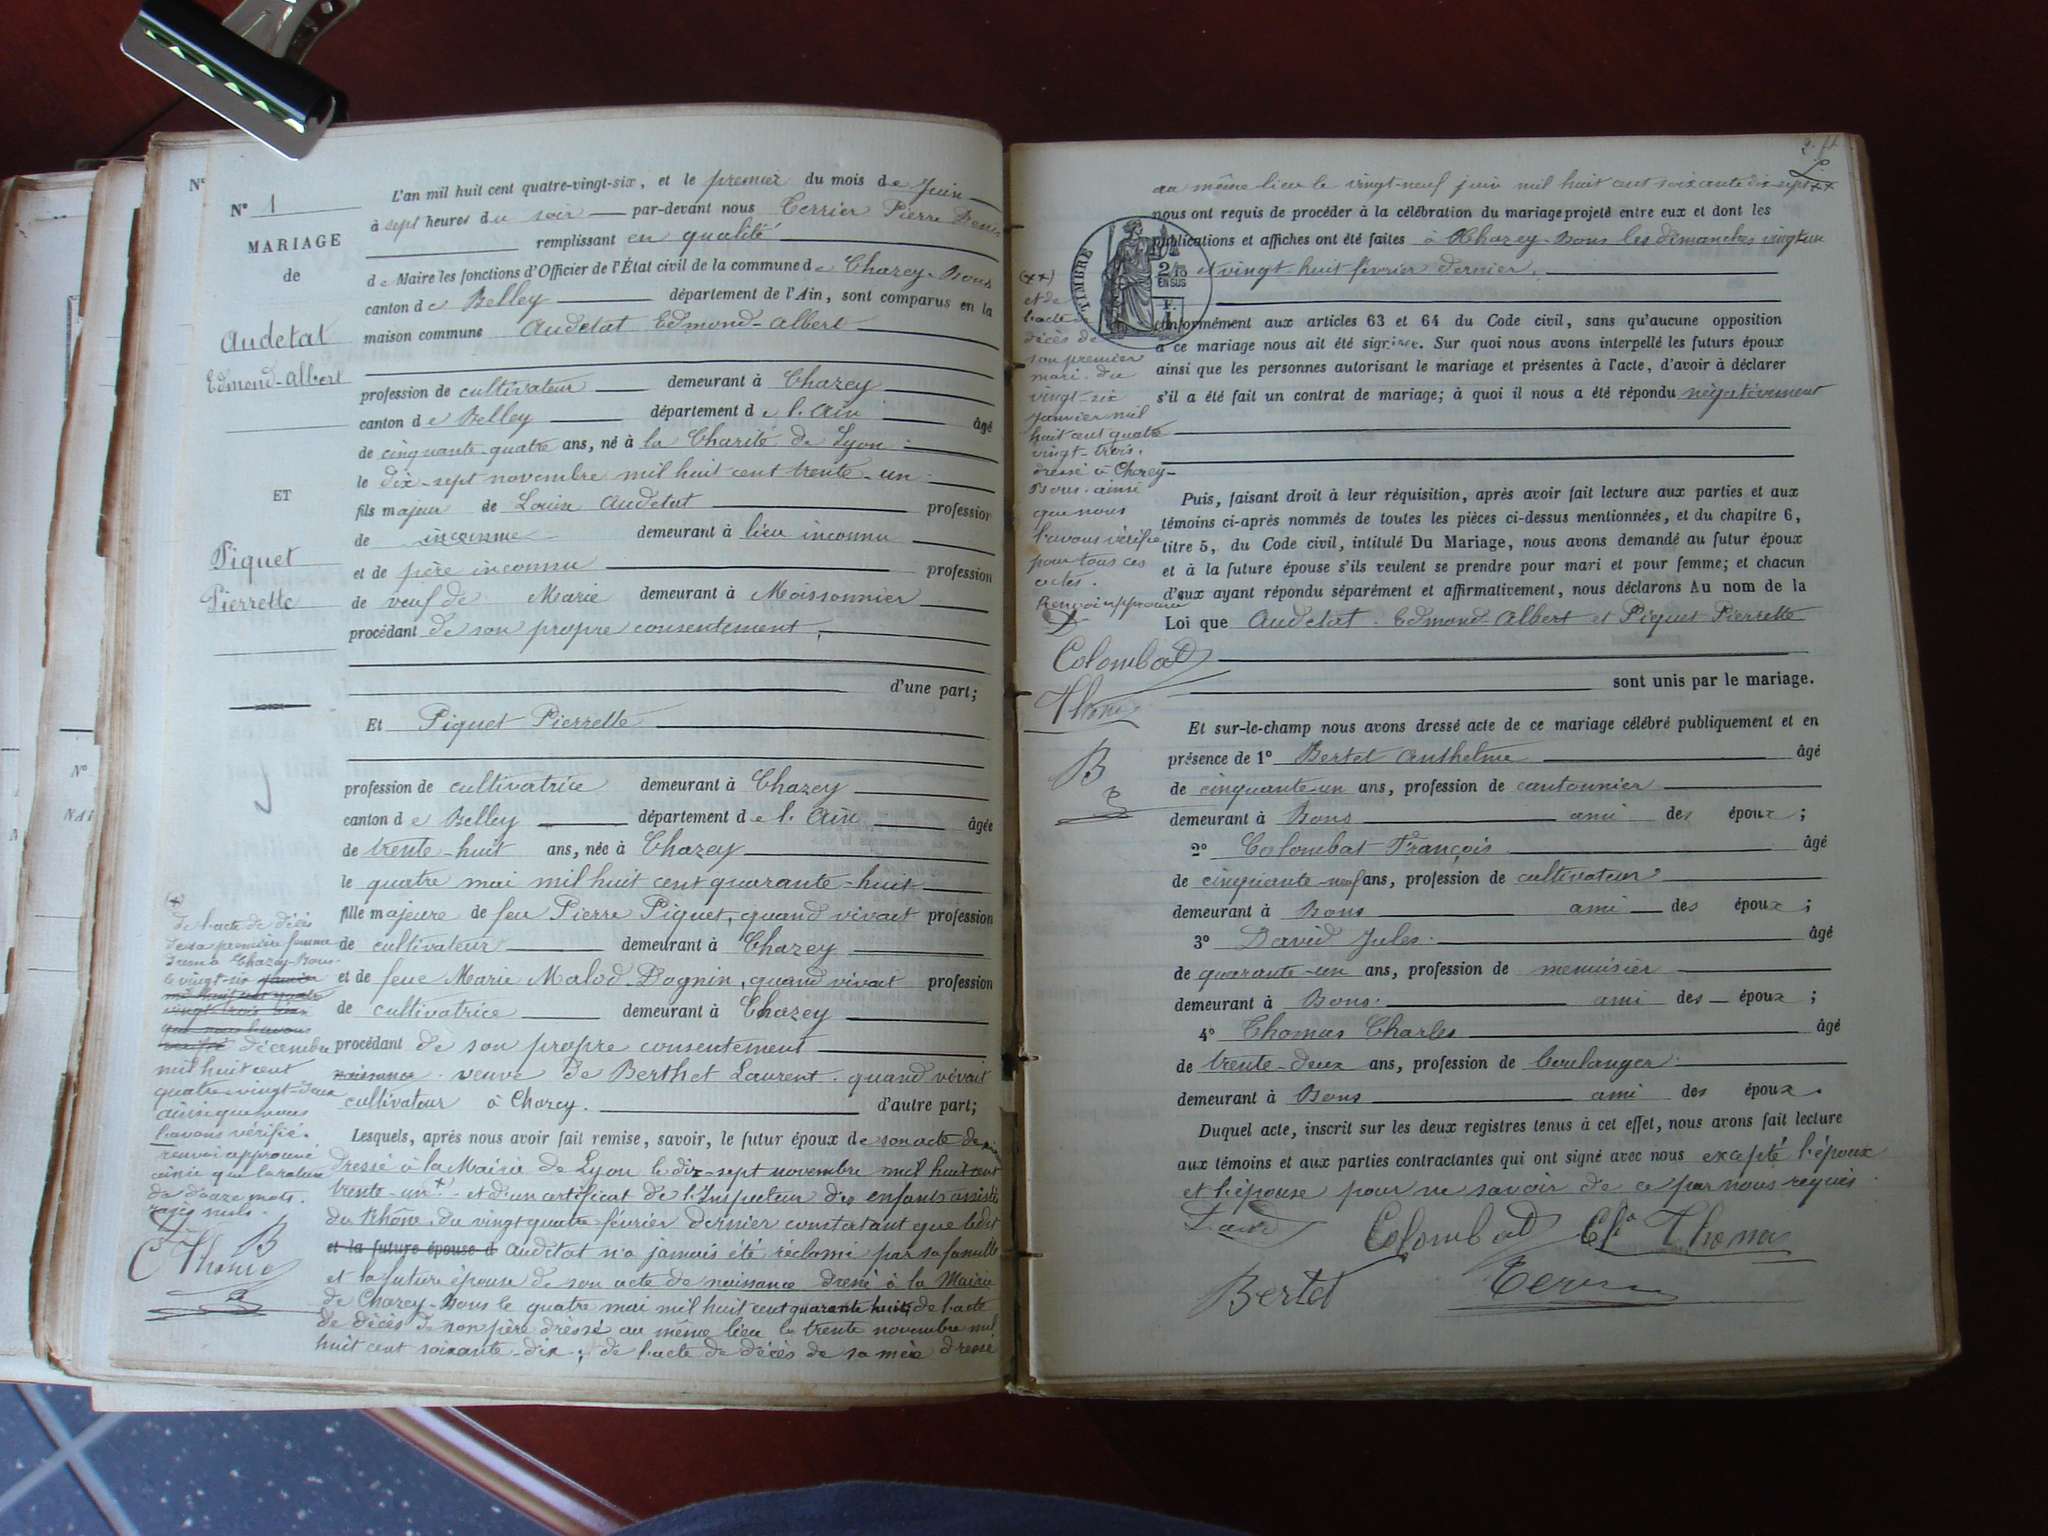 N°
N° 1
MARIAGE
de
Audetat
Edmond-Albert
ET
Piquet
Pierrette
L'an mil huit cent quatre-vingt-six, et le premier du mois de Juin
à sept heures du soir par-devant nous Terrier Pierre Denis
remplissant en qualité
de Maire les fonctions d'Officier de l'État civil de la commune de Chazey-Bons
canton de Belley département de l'Ain, sont comparus en la
maison commune Audetat Edmond-Albert
profession de cultivateur demeurant à Chazey
canton de Belley département de l'Ain âgé
de cinquante-quatre ans, né à la Charité de Lyon
le dix-sept novembre mil huit cent trente-un
fils majeur de Louise Audetat profession
de inconnue demeurant à lieu inconnu
et de père inconnu profession
de veuf de Marie demeurant à Moissonnier
procédant de son propre consentement,
d'une part;
Et Piquet Pierrette
profession de cultivatrice demeurant à Chazey
canton de Belley département de l'Ain âgée
de trente-huit ans, née à Chazey
le quatre mai mil huit cent quarante-huit
fille majeure de feu Pierre Piquet, quand vivait profession
de cultivateur demeurant à Chazey
et de feue Marie Malod-Dognin, quand vivait profession
de cultivatrice demeurant à Chazey
procédant de son propre consentement
naissance veuve de Berthet Laurent quand vivait
cultivateur à Chazey. d'autre part;
Lesquels, après nous avoir fait remise, savoir, le futur époux de son acte de
dressé à la Mairie de Lyon le dix-sept novembre mil huit cent
trente-un + et d'un certificat de l'Inspecteur des enfants assistés
du Rhône, du vingt quatre février dernier constatant que ledit
et la future épouse d Audetat n'a jamais été réclamé par sa famille
et la future épouse de son acte de naissance dressé à la Mairie
de Chazey-Bons le quatre mai mil huit cent quarante huit, de l'acte
de décès de son père dressé au même lieu le trente novembre mil
huit cent soixante-dix; de l'acte de décès de sa mère dressé
(+)
de l'acte de décès
de sa première femme
dressé à Chazey-Bons
le vingt-six janvier
mil huit cent quatre
vingt trois
que nous l'avons
vérifié décembre
mil huit cent
quatre-vingt-deux
ainsi que nous
l'avons vérifié.
renvoi approuvé
ainsi que la rature
de douze mots
rayés nuls.
B
C Thomas
N°
au même lieu le vingt-neuf juin mil huit cent soixante dix-sept ++
nous ont requis de procéder à la célébration du mariage projeté entre eux et dont les
publications et affiches ont été faites à Chazey-Bons les dimanches vingt un
et vingt-huit février dernier.
TIMBRE
2/10
EN SUS
conformément aux articles 63 et 64 du Code civil, sans qu'aucune opposition
à ce mariage nous ait été signifiée. Sur quoi nous avons interpellé les futurs époux
ainsi que les personnes autorisant le mariage et présentes à l'acte, d'avoir à déclarer
s'il a été fait un contrat de mariage; à quoi il nous a été répondu négativement
Puis, faisant droit à leur réquisition, après avoir fait lecture aux parties et aux
témoins ci-après nommés de toutes les pièces ci-dessus mentionnées, et du chapitre 6,
titre 5, du Code civil, intitulé Du Mariage, nous avons demandé au futur époux
et à la future épouse s'ils veulent se prendre pour mari et pour femme; et chacun
d'eux ayant répondu séparément et affirmativement, nous déclarons Au nom de la
Loi que Audetat Edmond Albert et Piquet Pierrette
sont unis par le mariage.
Et sur-le-champ nous avons dressé acte de ce mariage célébré publiquement et en
présence de 1° Bertet Anthelme âgé
de cinquante-un ans, profession de cantonnier
demeurant à Bons ami des époux;
2° Colombat François âgé
de cinquante-neuf ans, profession de cultivateur
demeurant à Bons ami des époux;
3° David Jules âgé
de quarante-un ans, profession de menuisier
demeurant à Bons ami des époux;
4° Thomas Charles âgé
de trente-deux ans, profession de boulanger
demeurant à Bons ami des époux.
Duquel acte, inscrit sur les deux registres tenus à cet effet, nous avons fait lecture
aux témoins et aux parties contractantes qui ont signé avec nous excepté l'époux
et l'épouse pour ne savoir de ce par nous requis.
David Colombat Ch Thomas
Bertet
(++)
et de
l'acte de
décès de
son premier
mari du
vingt-six
Janvier mil
huit cent quatre
vingt-trois.
dressé à Chazey-
Bons. ainsi
que nous
l'avons vérifié
pour tous ces
actes.
Renvoi approuvé
Colombat
Thomas
B